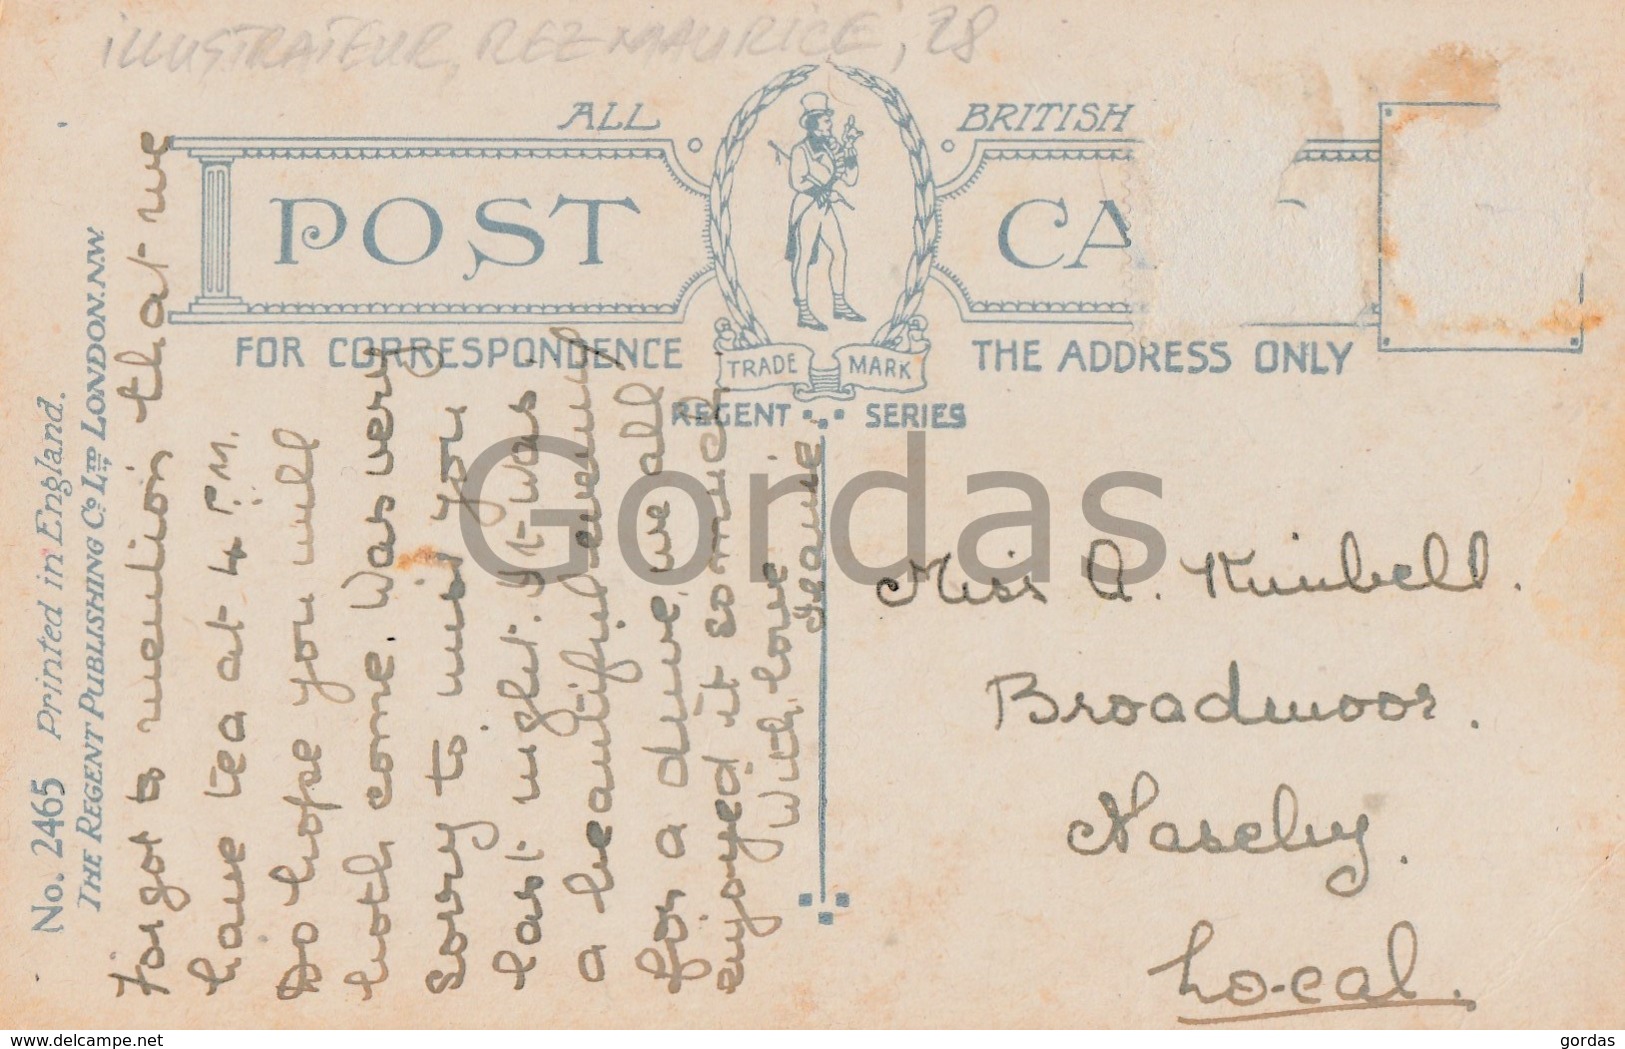 ILLUSTRATEUR, REZ MAURICE, 28
ALL BRITISH
POST CA
FOR CORRESPONDENCE
THE ADDRESS ONLY
TRADE MARK
REGENT SERIES
No. 2465 Printed in England.
THE REGENT PUBLISHING Co LTD LONDON. N.W.
Forgot to mention that we
have tea at 4 P.M.
Do hope you will
both come. Was very
sorry to miss you
last night. It was
a beautiful evening
for a drive, we all
enjoyed it so much.
With love
Jeanie.
Miss A. Kimbell.
Broadmoor.
Naseby.
Local.
Gordas
www.delcampe.net
gordas